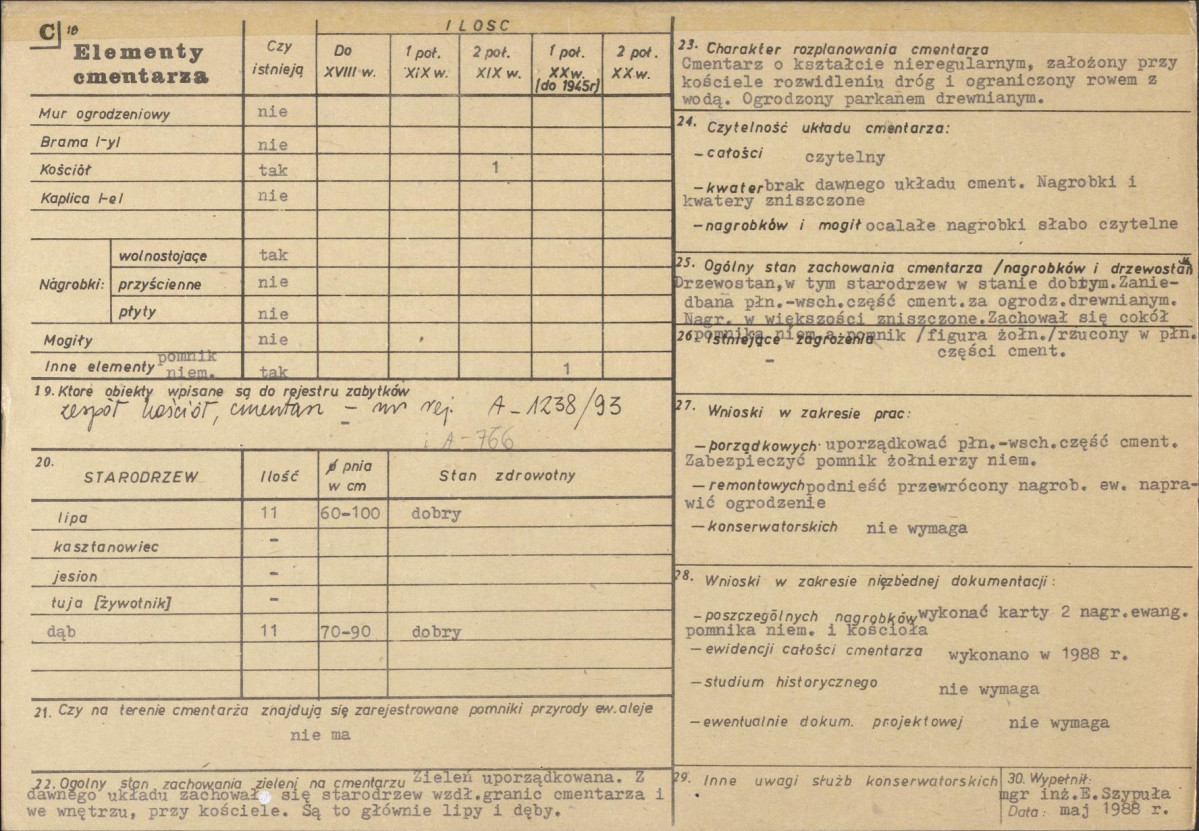 C 18
Elementy cmentarza
Czy istnieją
ILOŚĆ
Do XVIII w.
1 poł. XIX w.
2 poł. XIX w.
1 poł. XX w. (do 1945r)
2 poł. XX w.
Mur ogrodzeniowy nie
Brama I-yl nie
Kościół tak 1
Kaplica I-el nie
Nagrobki: wolnostojące tak
przyścienne nie
płyty nie
Mogiły nie
Inne elementy pomnik niem. tak 1
19. Które obiekty wpisane są do rejestru zabytków
zespół kościół, cmentarz – nr rej. A-1238/93
i A-766
20.
STARODRZEW Ilość ø pnia w cm Stan zdrowotny
lipa 11 60-100 dobry
kasztanowiec -
jesion -
tuja [żywotnik] -
dąb 11 70-90 dobry
21. Czy na terenie cmentarza znajdują się zarejestrowane pomniki przyrody ew. aleje
nie ma
22. Ogólny stan zachowania zieleni na cmentarzu Zieleń uporządkowana. Z
dawnego układu zachował się starodrzew wzdł.granic cmentarza i
we wnętrzu, przy kościele. Są to głównie lipy i dęby.
23. Charakter rozplanowania cmentarza
Cmentarz o kształcie nieregularnym, założony przy
kościele rozwidleniu dróg i ograniczony rowem z
wodą. Ogrodzony parkanem drewnianym.
24. Czytelność układu cmentarza:
- całości czytelny
- kwater brak dawnego układu cment. Nagrobki i
kwatery zniszczone
- nagrobków i mogił ocalałe nagrobki słabo czytelne
25. Ogólny stan zachowania cmentarza /nagrobków i drzewostanu
Drzewostan,w tym starodrzew w stanie dobrym.Zanie-
dbana płn.-wsch.część cment.za ogrodz.drewnianym.
Nagr. w większości zniszczone.Zachował się cokół
pomnika niem.a pomnik /figura żołn./rzucony w płn.
części cment.
26. Istniejące zagrożenia
-
27. Wnioski w zakresie prac:
- porządkowych uporządkować płn.-wsch.część cment.
Zabezpieczyć pomnik żołnierzy niem.
- remontowych podnieść przewrócony nagrob. ew. napra-
wić ogrodzenie
- konserwatorskich nie wymaga
28. Wnioski w zakresie niezbędnej dokumentacji:
- poszczególnych nagrobków wykonać karty 2 nagr.ewang.
pomnika niem. i kościoła
- ewidencji całości cmentarza wykonano w 1988 r.
- studium historycznego nie wymaga
- ewentualnie dokum. projektowej nie wymaga
29. Inne uwagi służb konserwatorskich
30. Wypełnił:
mgr inż.E.Szypuła
Data: maj 1988 r.